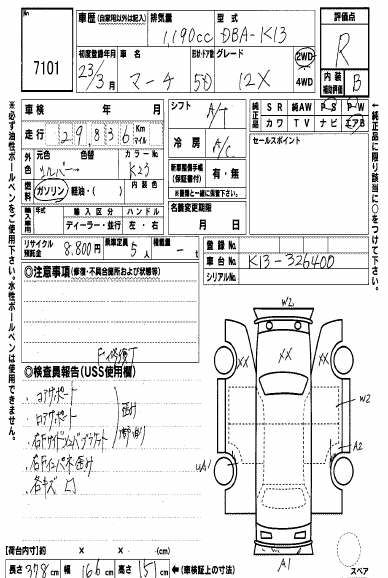 No.
7101
車歴 (自家用以外は記入)
排気量
型式
評価点
1,190cc
DBA-K13
R
初度登録年月
車名
形状・ドア数
グレード
2WD
4WD
23/3月
マーチ
5D
12X
内装
補助評価
B
車検 年 月
シフト
A/T
純正品
SR 純AW PS PW
カワ TV ナビ エアB
走行
29,836
Km
マイル
冷房
A/C
セールスポイント
外色
元色 色替
シルバー
カラーNo.
K23
新車整備手帳
(保証書付)
有・無
※書類と一緒に保管下さい。
燃料
ガソリン 軽油・( )
内装色
輸入車用
年式
輸入区分
ハンドル
ディーラー・並行
左・右
名義変更期限
月 日
リサイクル
預託金
8,800円
乗車定員
5人
積載量
-t
登録No.
車台No.
K13-326400
シリアルNo.
◎注意事項(修復・不具合箇所および状態等)
F修復了
◎検査員報告(USS使用欄)
コアサポート
ロアサポート
右Fインパネ曲り
各キズ凹
W2
XX
XX
XX
W2
A2
UA1
A1
スペア
【荷台内寸】約 × × (cm)
長さ378cm 幅166cm 高さ151cm ←(車検証上の寸法)
※必ず油性ボールペンをご使用下さい。水性ボールペンは使用できません。
←純正品に限り該当に○をつけて下さい。